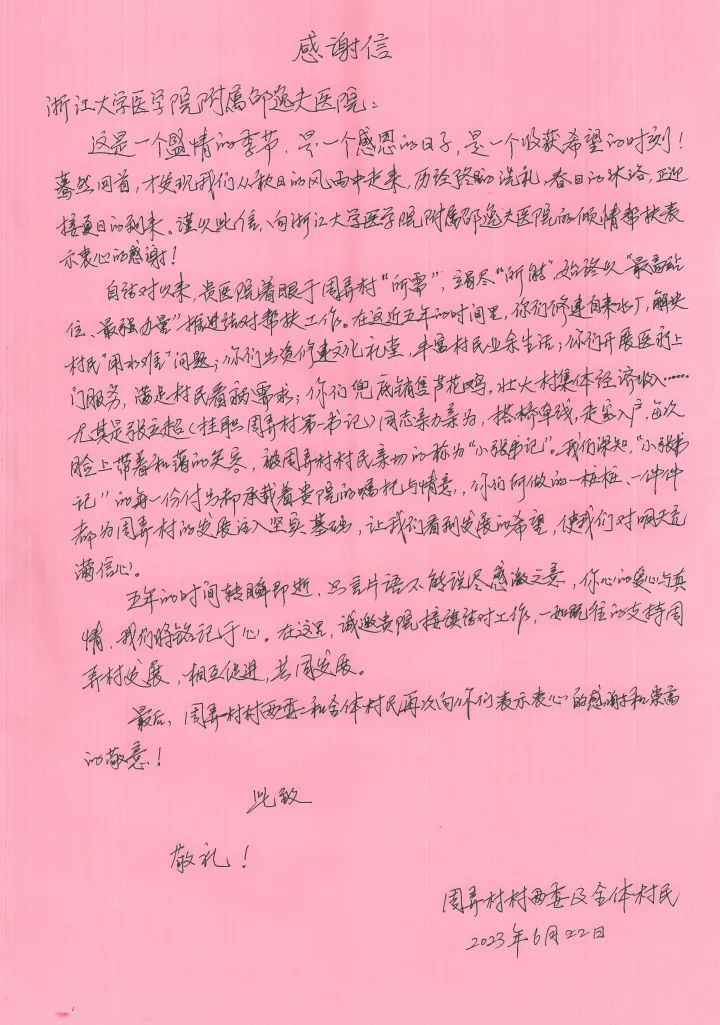 感谢信
浙江大学医学院附属邵逸夫医院：
这是一个盛情的季节，是一个感恩的日子，是一个收获希望的时刻！
蓦然回首，才发现我们从秋日的风雨中走来，历经隆冬的洗礼，春日的沐浴，正迎
接夏日的到来。谨以此信，向浙江大学医学院附属邵逸夫医院的倾情帮扶表
示衷心的感谢！
自结对以来，贵医院着眼于周弄村“所需”，竭尽“所能”，始终以“最高站
位、最强力量”推进结对帮扶工作。在这近五年的时间里，你们修建自来水厂，解决
村民“用水难”问题；你们出资修建文化礼堂，丰富村民业余生活；你们开展医疗上
门服务，满足村民看病需求；你们兜底销售芦花鸡，壮大村集体经济收入……
尤其是张立超（挂职周弄村第一书记）同志亲力亲为，搭桥牵线，走家入户，每次
脸上带着和蔼的笑容，被周弄村村民亲切的称为“小张书记”。我们深知，“小张书
记”的每一份付出都承载着贵院的嘱托与情意，你们所做的一桩桩、一件件
都为周弄村的发展注入坚实基础，让我们看到发展的希望，使我们对明天充
满信心。
五年的时间转瞬即逝，只言片语不能误尽感激之意，你心的爱心与真
情，我们将铭记于心。在这里，诚邀贵院接续结对工作，一如既往的支持周
弄村发展，相互促进，共同发展。
最后，周弄村村两委和全体村民再次向你们表示衷心的感谢和崇高
的敬意！
此致
敬礼！
周弄村村两委及全体村民
2023年6月22日